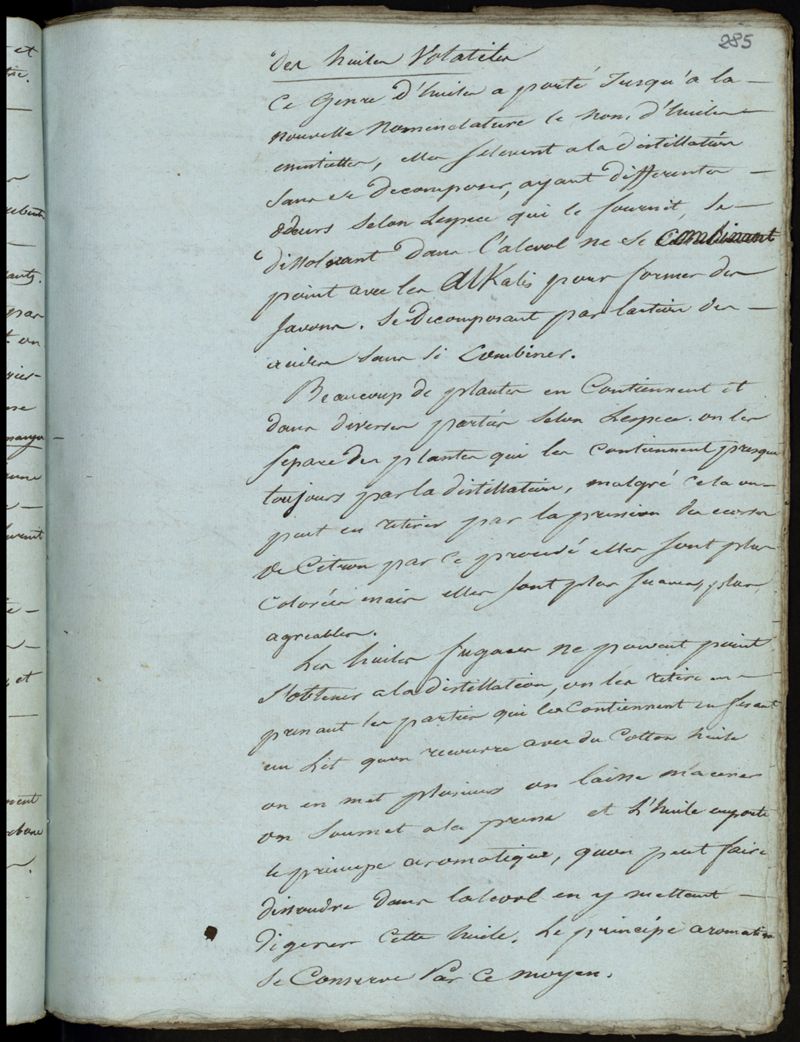 285
Des huiles Volatiles
Ce Genre d'huiles a porté Jusqu'a la —
nouvelle nomenclature le nom d'huiles
essentielles, elles s'elevent a la distillation
sans se decomposer, ayant differentes —
odeurs selon l'espece qui le fournit, se
dissolvant dans l'alcool ne se combinant
point avec les alkalis pour former des
savons. se decomposant par l'action des —
acides sans si combiner.
Beaucoup de plantes en Contiennent et
dans diverses parties selon l'espece. on les
separe des plantes qui les contiennent presque
toujours par la distillation, malgré cela on —
peut en retirer par la pression des ecorses
de Citron par ce procédé elles sont plus
colorées mais elles sont plus suaves, plus
agreables.
Les huiles fugaces ne peuvent point
s'obtenir a la distillation, on les retire en —
prenant les parties qui les Contiennent en fesant
un Lit qu'on recouvre avec du Cotton huilé
on en met plusieurs on laisse macerer
on soumet a la presse et L'huile emporte
le principe aromatique, qu'on peut faire
dissoudre dans l'alcool en y mettant —
digerer cette huile. Le principe aromatique
se Conserve Par Ce moyen.